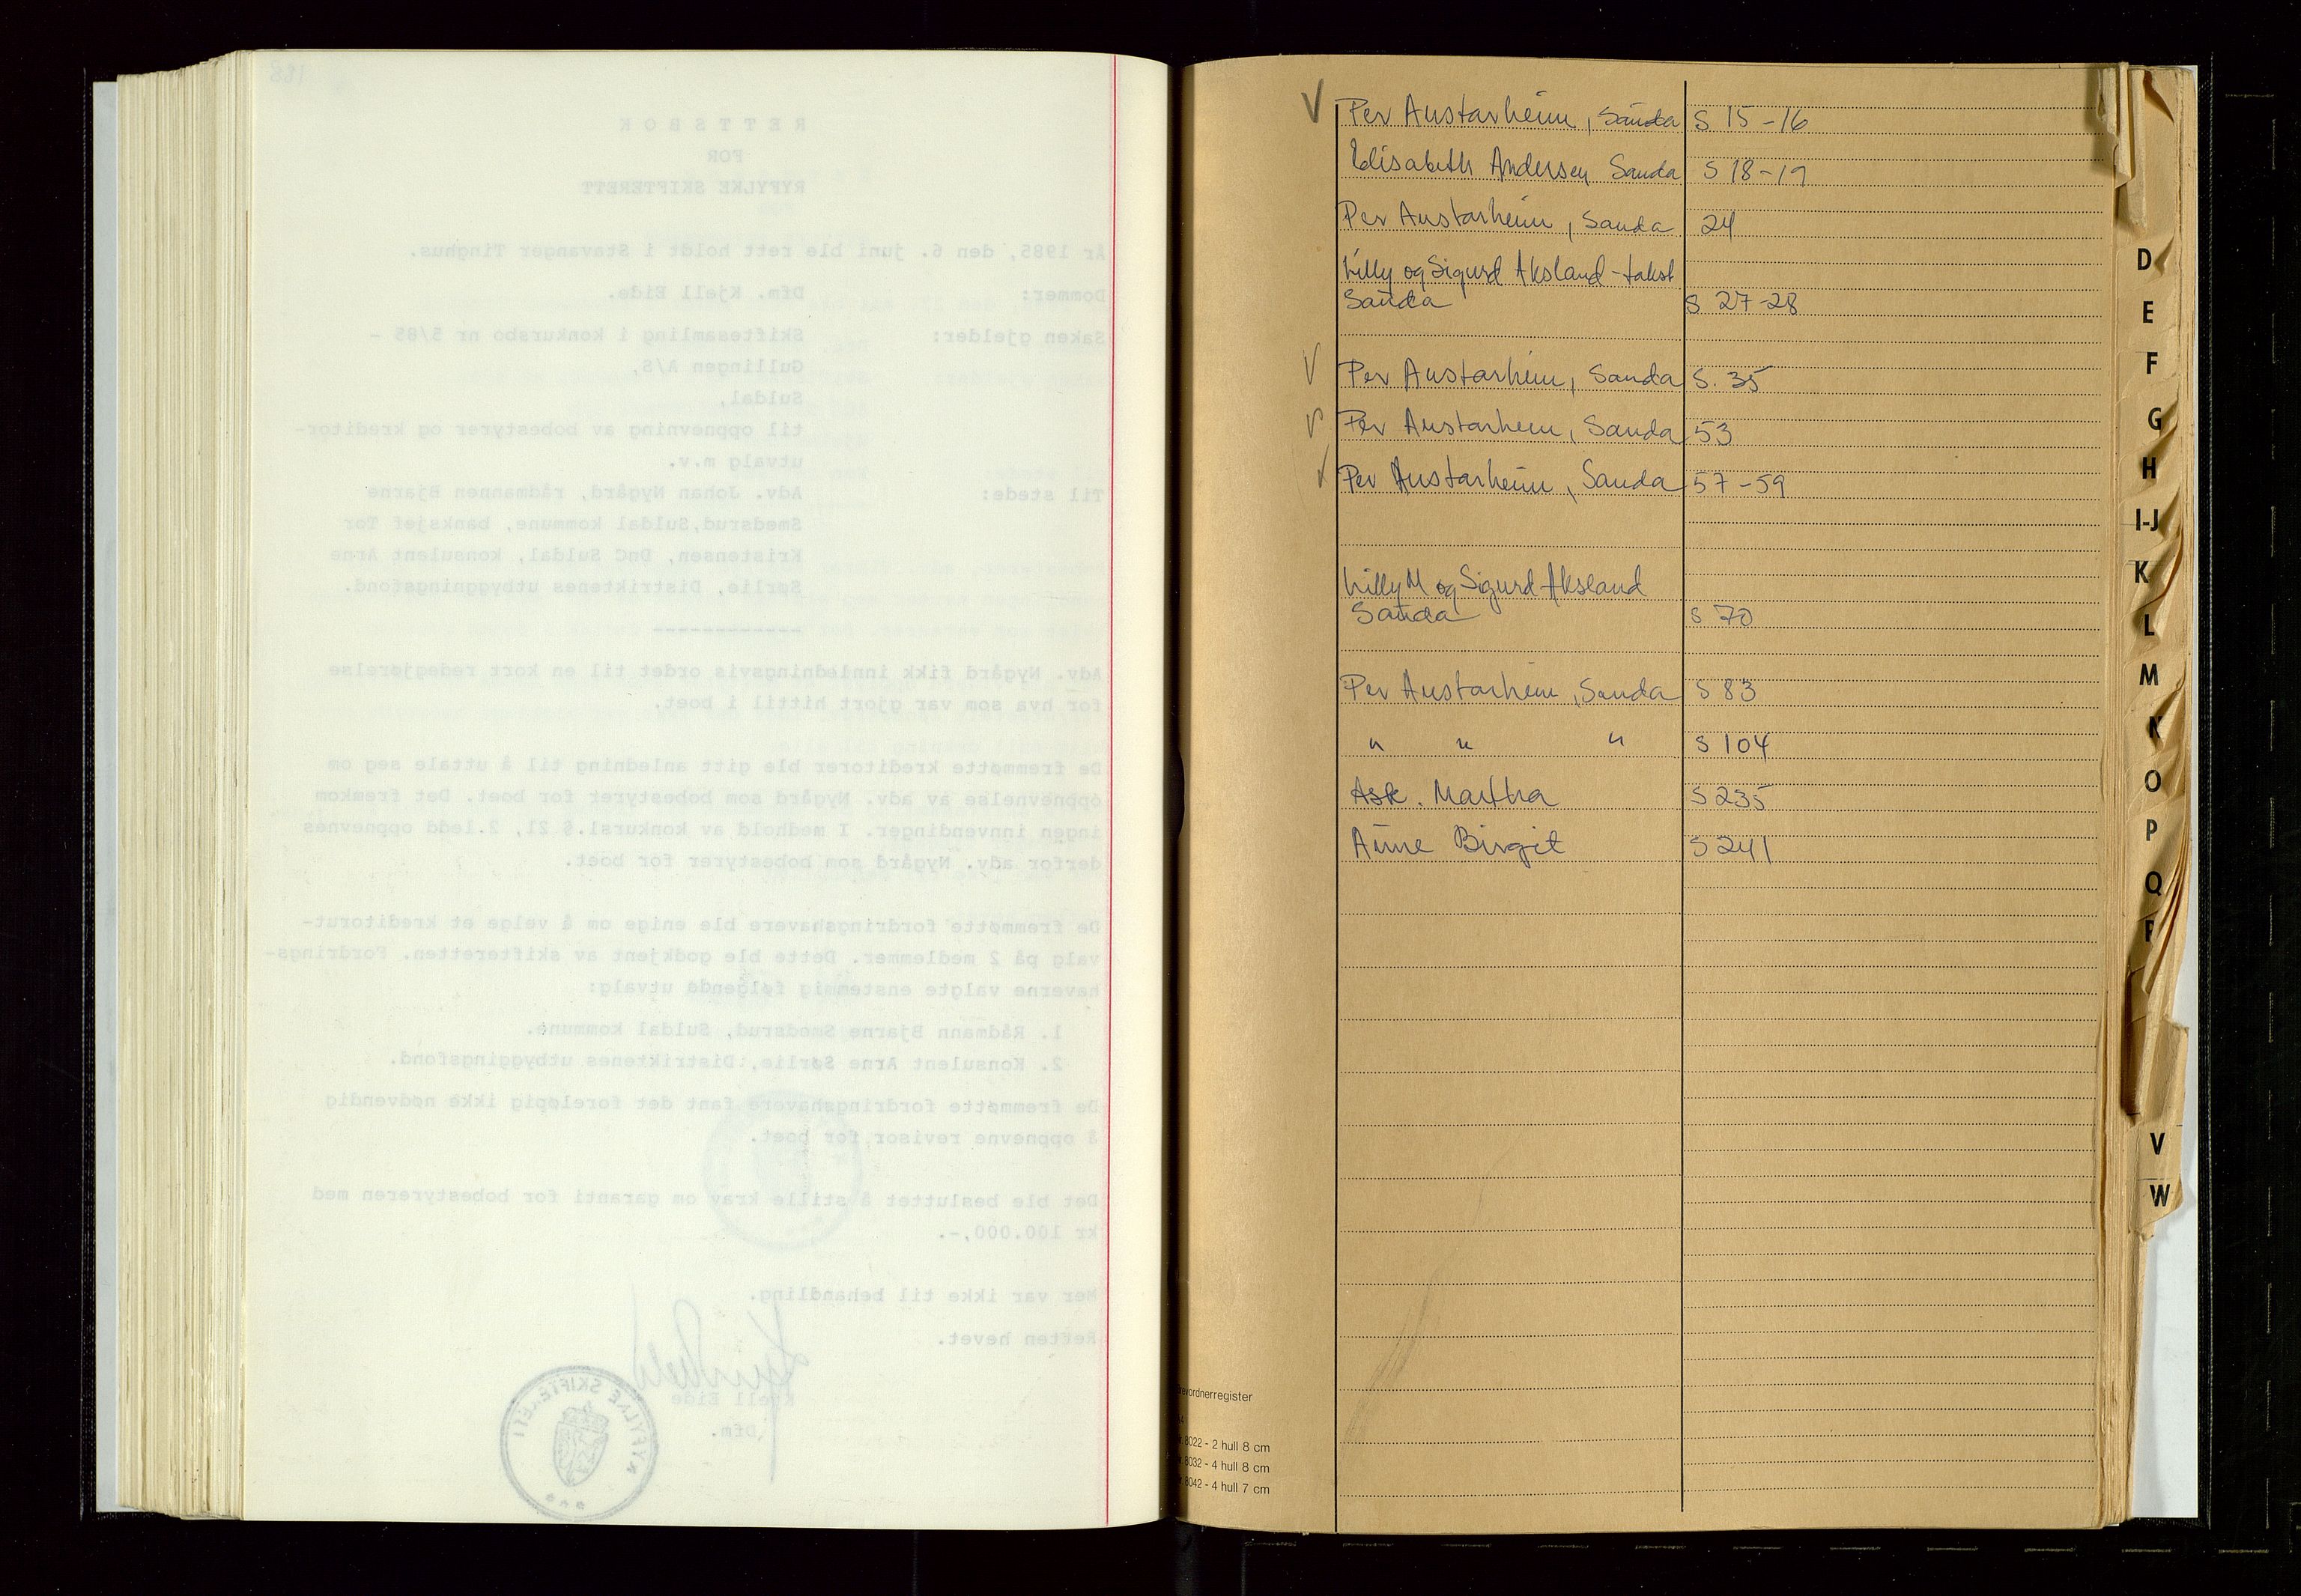 188
RETTSBOK
FOR
RYFYLKE SKIFTERETT
År 1985, den 6. juni ble rett holdt i Stavanger Tinghus.
Dommer: Dfm. Kjell Eide.
Saken gjelder: Skiftesamling i konkursbo nr 5/85 -
Gullingen A/S,
Suldal,
til oppnevning av bobestyrer og kreditor-
utvalg m.v.
Til stede: Adv. Johan Nygård, rådmannen Bjarne
Smedsrud, Suldal kommune, banksjef Tor
Kristensen, DnC Suldal, konsulent Arne
Sørlie, Distriktenes utbyggningsfond.
------------
Adv. Nygård fikk innledningsvis ordet til en kort redegjørelse
for hva som var gjort hittil i boet.
De fremmøtte kreditorer ble gitt anledning til å uttale seg om
oppnevnelse av adv. Nygård som bobestyrer for boet. Det fremkom
ingen innvendinger. I medhold av konkursl.§ 21, 2.ledd oppnevnes
derfor adv. Nygård som bobestyrer for boet.
De fremmøtte fordringshavere ble enige om å velge et kreditorut-
valg på 2 medlemmer. Dette ble godkjent av skifteretten. Fordrings-
haverne valgte enstemmig følgende utvalg:
1. Rådmann Bjarne Smedsrud, Suldal kommune.
2. Konsulent Arne Sørlie, Distriktenes utbyggingsfond.
De fremmøtte fordringshavere fant det foreløpig ikke nødvendig
å oppnevne revisor for boet.
Det ble besluttet å stille krav om garanti for bobestyreren med
kr 100.000,-.
Mer var ikke til behandling.
Retten hevet.
Kjell Eide
Dfm.
RYFYLKE SKIFTERETT
V Per Austarheim, Sanda S 15-16
Elisabeth Andersen Sanda S 18-19
Per Austarheim, Sanda 24
Lilly og Sigurd Aksland - takst
Sanda S 27-28
V Per Austarheim, Sanda S. 35
V Per Austarheim, Sanda 53
V Per Austarheim, Sanda 57-59
Lilly M og Sigurd Aksland
Sanda S 70
Per Austarheim, Sanda S 83
" " " S 104
Ask. Martha S 235
Anne Birgit S 241
revordnerregister
8022 - 2 hull 8 cm
8032 - 4 hull 8 cm
8042 - 4 hull 7 cm
D
E
F
G
H
I-J
K
L
M
N
O
P
Q
R
V
W